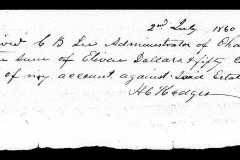 2nd July 1860
C B Lee Administrator of Cha
sum of Eleven Dollars & fifty C
of my account against Said Estat
H C Hodges